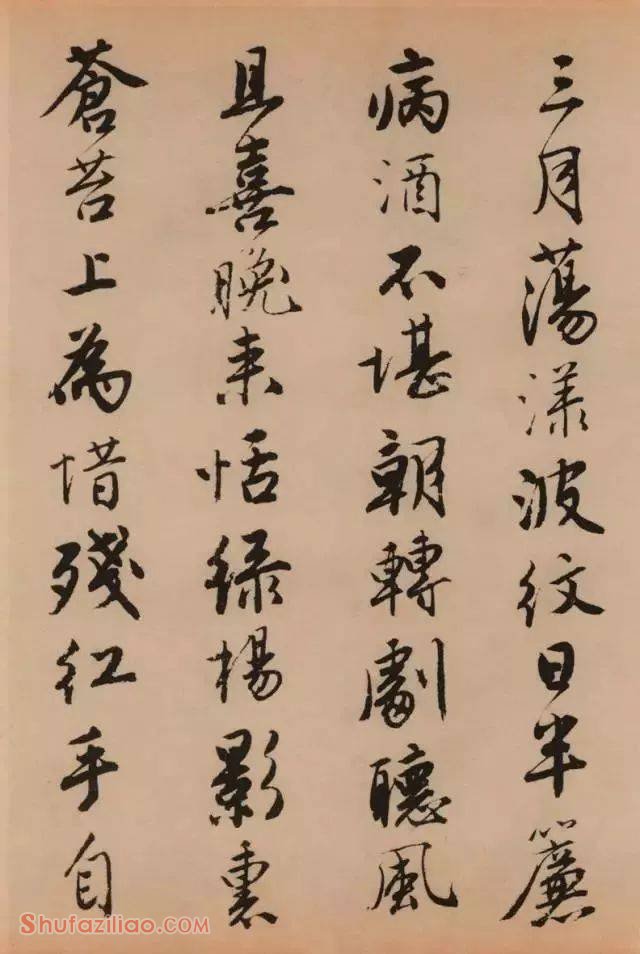 三月蕩漾波紋日半簾
病酒不堪朝轉劇聽風
且喜晚來恬綠楊影裏
蒼苔上為惜殘紅手自
Shufaziliao.com